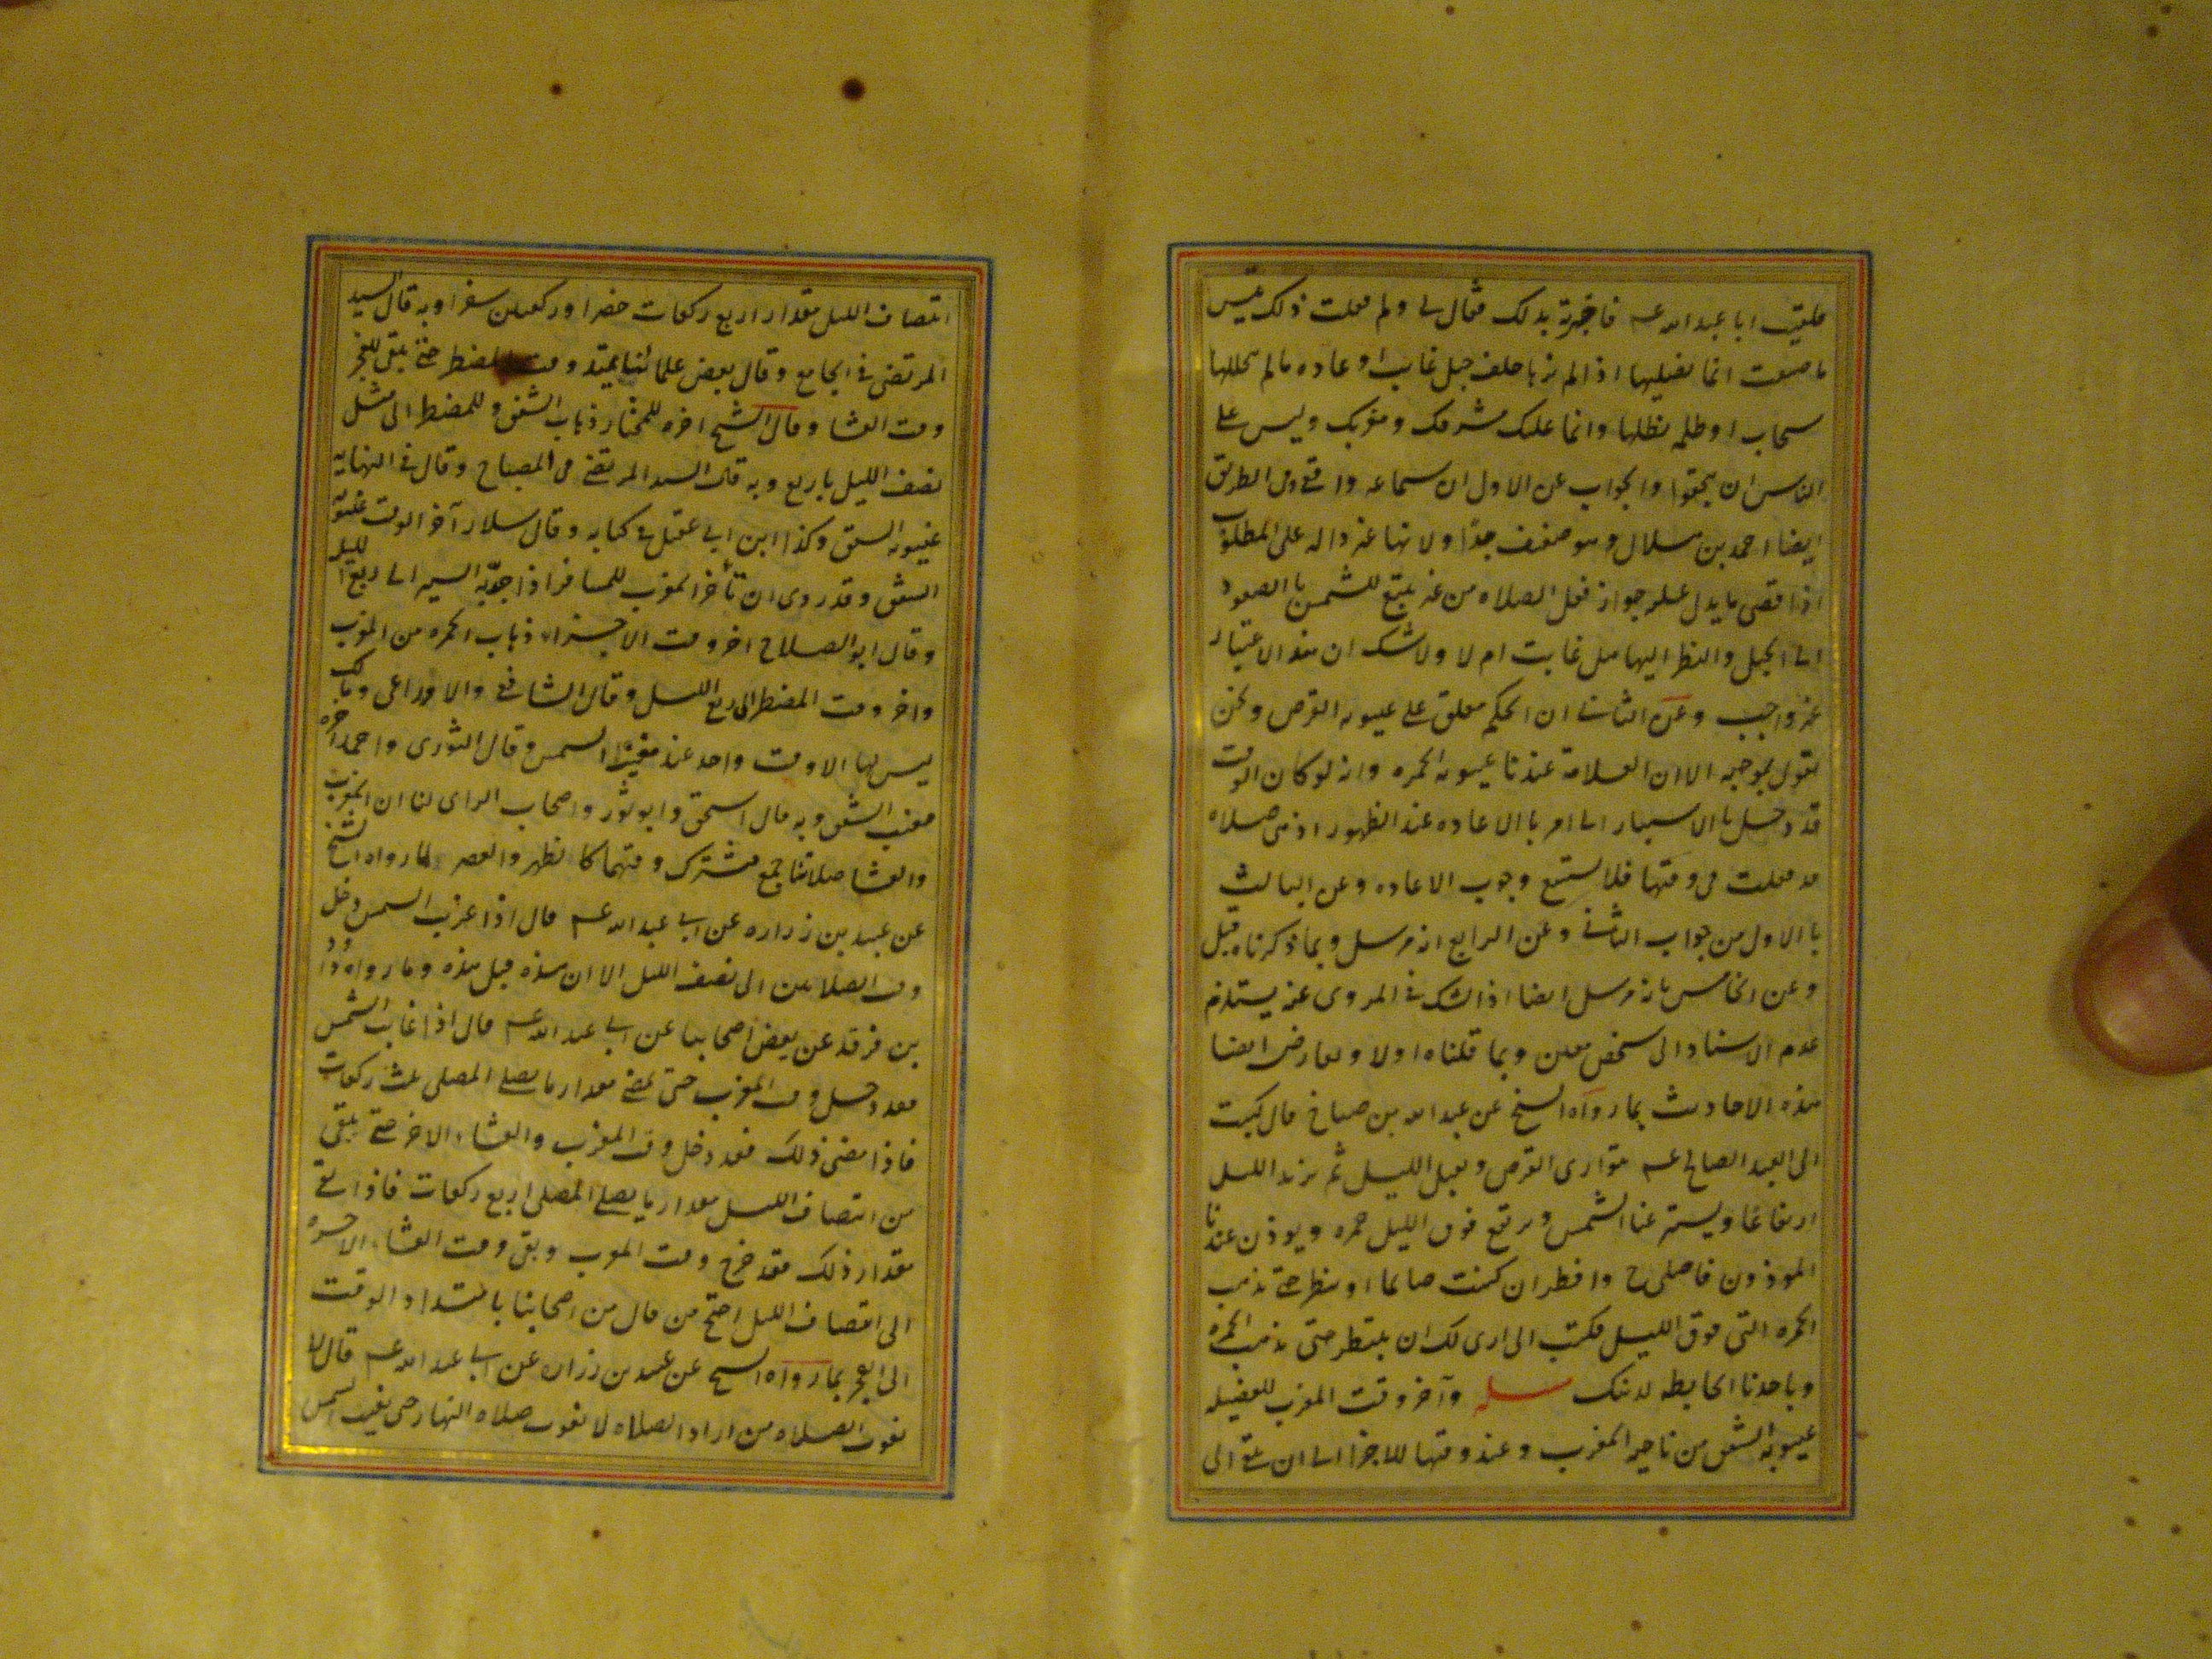 فلقيت ابا عبد الله عـ فاخبرته بذلك فقال لي ولم فعلت ذلك بئس
ما صنعت انما تصليها اذا لم ترها خلف جبل غابت او غاده مالم تجللها
سحاب او ظلمه تظلها وانما عليك مشرقك ومغربك وليس على
الناس ان يبحثوا والجواب عن الاول ان سماعه واقفي وفي الطريق
ايضا احمد بن هلال وهو ضعيف جدا ولانها غير داله على المطلوب
اذ اقصى ما يدل على جواز فعل الصلاه من غير تتبع للشمس بالصعود
الى الجبل والنظر اليها هل غابت ام لا ولا شك ان هذا الاعتبار
غير واجب وعن الثاني ان الحكم معلق على غيبوبه القرص ونحن
نقول بموجبه الا ان العلامة عندنا غيبوبه الحمره وانه لو كان الوقت
قد دخل بالاستتار لما امر بالاعاده عند الظهور اذ هي صلاه
قد فعلت في وقتها فلا تستتبع وجوب الاعاده وعن الثالث
بالاول من جواب الثاني وعن الرابع انه مرسل وبما ذكرناه قبل
وعن الخامس بانه مرسل ايضا اذ الشك في المروى عنه يستلزم
عدم الاسناد الى شخص معين وبما قلناه اولا ويعارض ايضا
هذه الاحاديث بما رواه الشيخ عن عبد الله بن صباح قال كتبت
الى العبد الصالح عـ يتوارى القرص ويقبل الليل ثم يزيد الليل
ارتفاعا ويستتر عنا الشمس ويرتفع فوق الليل حمره ويوذن عندنا
الموذنون فاصلي ح وافطر ان كنت صائما او ينظر حتى تذهب
الحمره التي فوق الليل فكتب الى ارى لك ان تنتظر حتى تذهب الحمره
وياخذنا الحايطه لدينك مسله وآخر وقت المغرب للفضيله
غيبوبه الشفق من ناحيه المغرب وعند وقتها للاجزا الى ان يبقى الى
انتصاف الليل مقدار اربع ركعات حضرا وركعتين سفرا وبه قال السيد
المرتضى في الجامع وقال بعض علمائنا يمتد وقت المضطر حتى يبقى للفجر
وقت العشا وقال الشيخ اخره للمختار ذهاب الشفق وللمضطر الى مثل
نصف الليل باربع وبه قال السيد المرتضى في المصباح وقال في النهايه
غيبوبه الشفق وكذا ابن ابي عقيل في كتابه وقال سلار آخر الوقت غيبوبه
الشفق وقد روى ان تأخر المغرب للمسافر اذا جد به السير الى ربع الليل
وقال ابو الصلاح اخر وقت الاجزاء ذهاب الحمره من المغرب
واخر وقت المضطر الى ربع الليل وقال الشافعي والاوزاعي ومالك
ليس لها الا وقت واحد عند مغيب الشمس وقال الثوري واحمد اخره
مغيب الشفق وبه قال اسحق وابو ثور واصحاب الراى لنا ان المغرب
والعشا صلاتا جمع فيشترك وقتهما كالظهر والعصر لما رواه الشيخ
عن عبيد بن زراره عن ابي عبد الله عـ قال اذا غربت الشمس دخل
وقت الصلاتين الى نصف الليل الا ان هذه قبل هذه وما رواه داود
بن فرقد عن بعض اصحابنا عن ابي عبد الله عـ قال اذا غابت الشمس
فقد دخل وقت المغرب حتى يمضي مقدار ما يصلى المصلى ثلث ركعات
فاذا مضى ذلك فقد دخل وقت المغرب والعشاء الاخر حتى يبقى
من انتصاف الليل مقدار ما يصلى المصلى اربع ركعات فاذا بقى
مقدار ذلك فقد خرج وقت المغرب وبقى وقت العشاء الاخره
الى انتصاف الليل احتج من قال من اصحابنا بامتداد الوقت
الى الفجر بما رواه الشيخ عن عبيد بن زراره عن ابي عبد الله عـ قال لا
تفوت الصلاه من اراد الصلاه لا تفوت صلاه النهار حتى تغيب الشمس